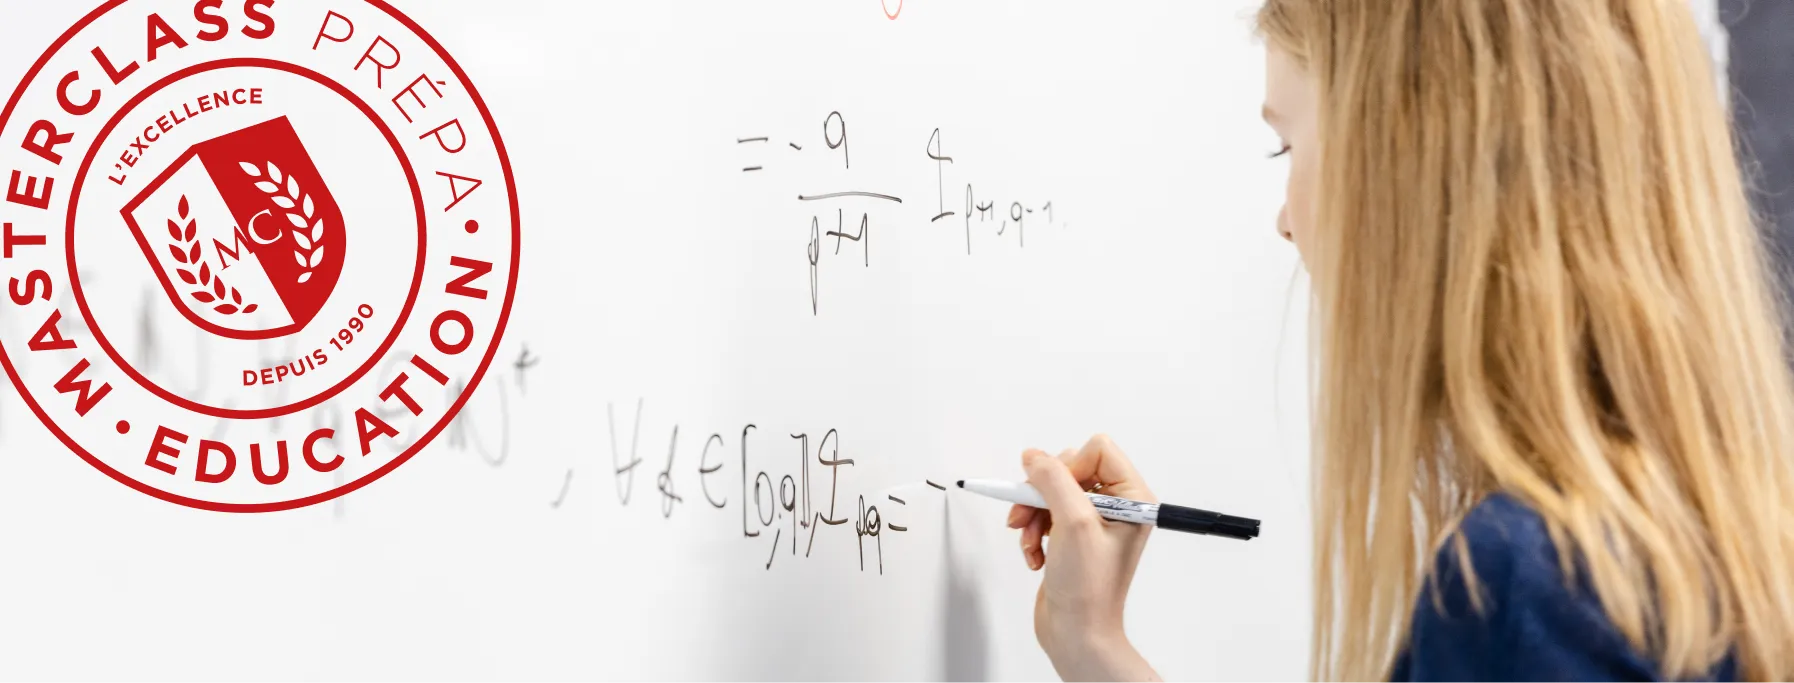 MASTERCLASS PRÉPA • EDUCATION •
L'EXCELLENCE
MC
DEPUIS 1990
= - q / p+1 I p+1, q-1
, ∀ k ∈ [0,q], I p,q = -